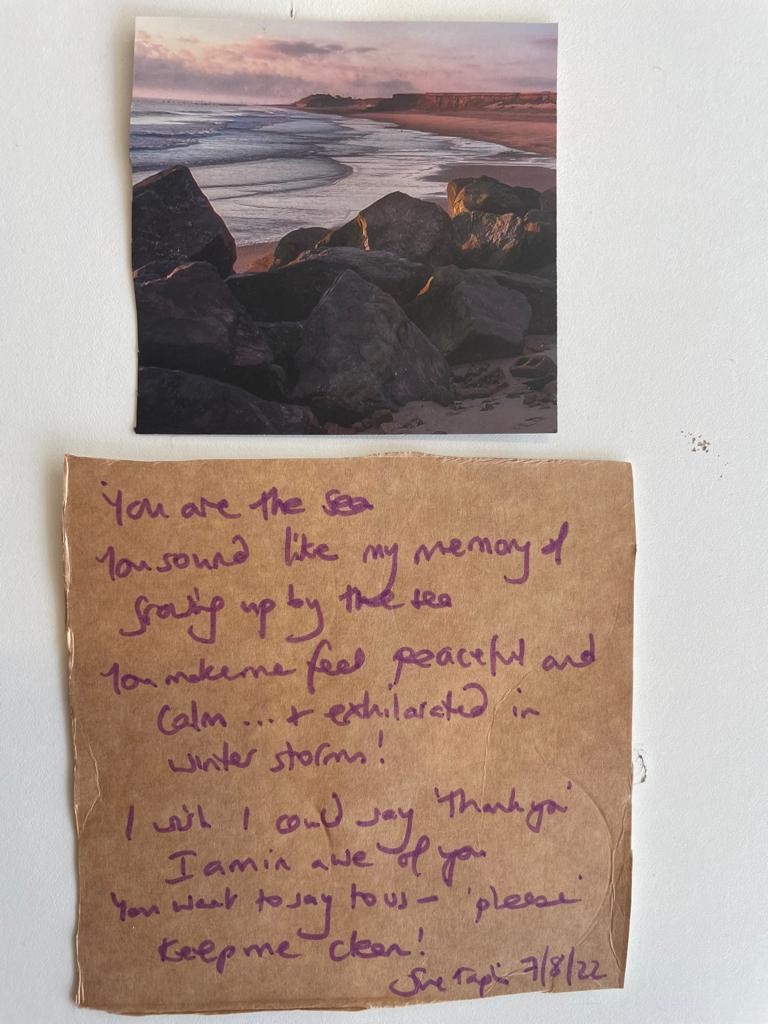 You are the sea
You sound like my memory of
growing up by the sea
You make me feel peaceful and
calm ... + exhilarated in
winter storms!
I wish I could say 'Thank you'
I am in awe of you
You want to say to us – 'please'
keep me clean!
Sue 7/8/22